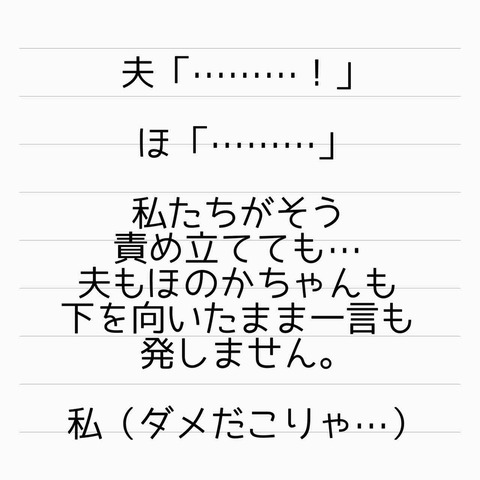 夫「………！」
ほ「………」
私たちがそう
責め立てても…
夫もほのかちゃんも
下を向いたまま一言も
発しません。
私（ダメだこりゃ…）